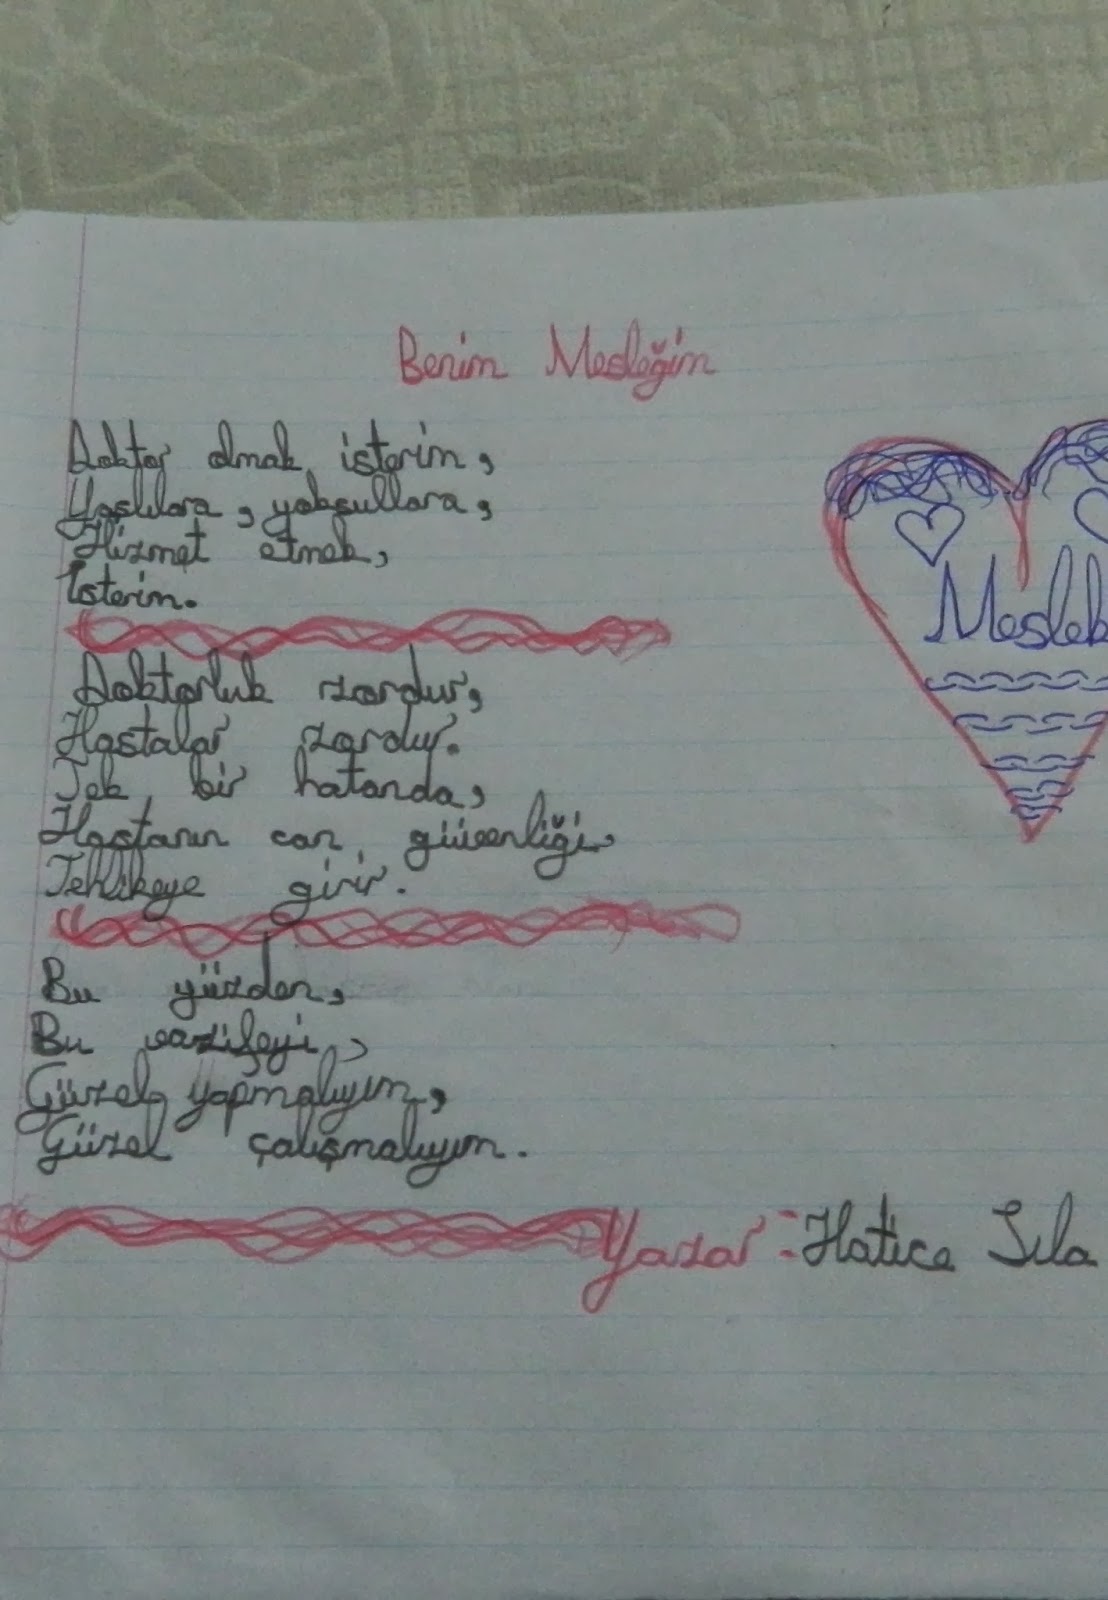 Benim Mesleğim
Doktor olmak isterim,
Yaşlılara, yoksullara,
Hizmet etmek,
İsterim.
Doktorluk zordur,
Hastalar zordur.
Tek bir hatanda,
Hastanın can güvenliği
Tehlikeye girir.
Bu yüzden,
Bu vazifeyi,
Güzel yapmalıyım,
Güzel çalışmalıyım.
Yazar: Hatice Sıla
Meslek